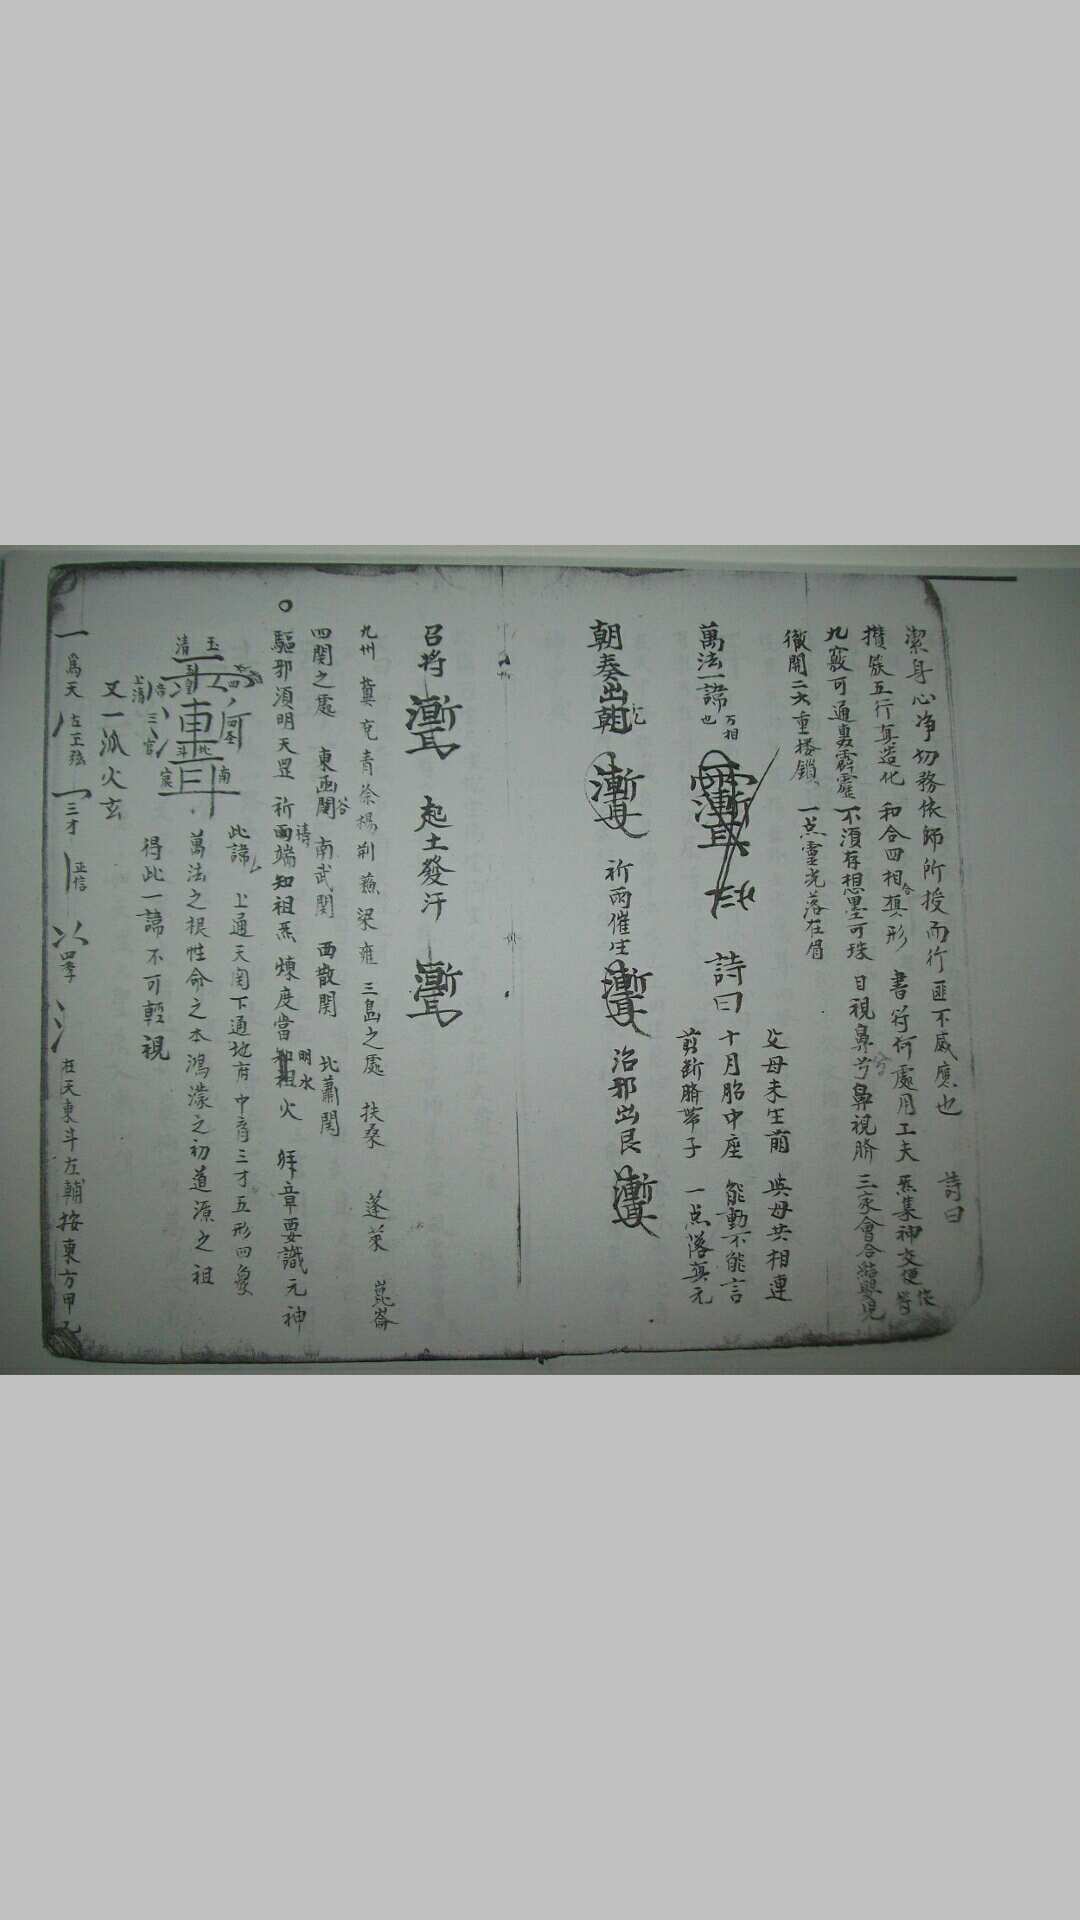 潔身心净切務依師所授而行匪不感應也 詩曰
攢簇五行奪造化 和合四相合真形 書符何處用工夫 炁集神交便
九竅可通轟霹靂 不須存想墨可珠 目視鼻兮鼻視臍 三家會合結嬰兒
徹開二六重楼鎖 一点霊光落在眉
父母未生前 與母共相連
萬法一諱也 詩曰 十月胎中座 能動不能言
剪断臍帯子 一点落真元
朝奏出朝 祈雨催生 治邪出艮
召将 起土發汗
九州 冀兗青徐楊荊 梁雍 三島之處 扶桑 蓬莱 崑崙
四関之處 東函谷関 南武関 西散関 北蕭関
○驅邪須明天罡 祈雨禱端知祖炁 煉度當明水火 拜章要識元神
玉清
此諱 上通天関下通地府中 三才五形四象
萬法之根性命之本鴻濛之初道源之祖
上清 三 官
得此一諱不可輕視
又一派火玄
一為天 左玉 三才 正信 四季 在天東斗左輔按東方甲乙